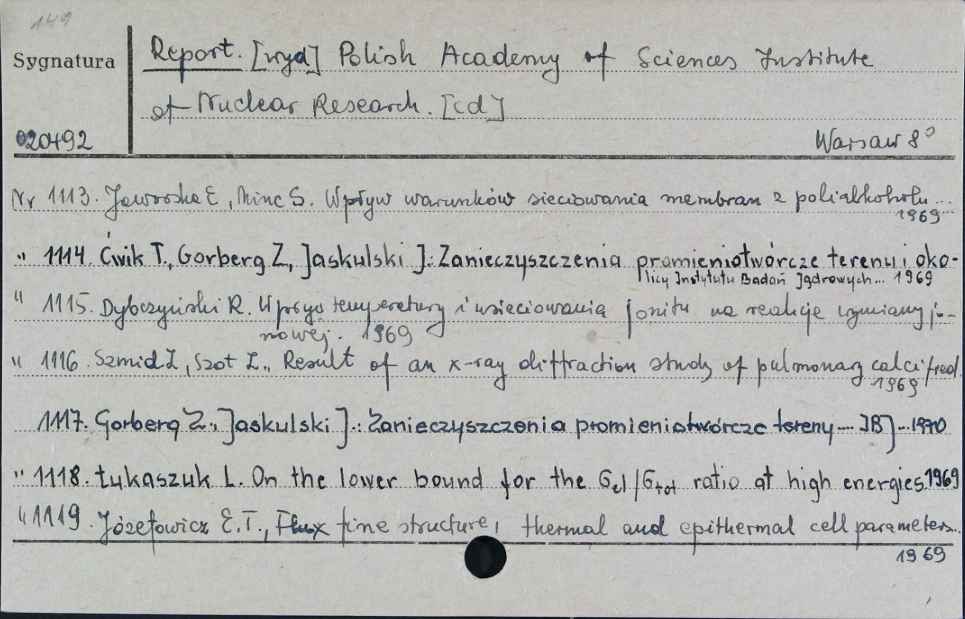 149
Sygnatura
Report. [wyd] Polish Academy of Sciences Institute
of Nuclear Research. [cd]
020492
Warsaw 8°
Nr 1113. Jaworska E, Minc S. Wpływ warunków sieciowania membran z polialkoholu...
1969
" 1114. Ćwik T., Gorberg Z, Jaskulski J.: Zanieczyszczenia promieniotwórcze terenu i oko-
licy Instytutu Badań Jądrowych... 1969
" 1115. Dybczyński R. Wpływ temperatury i usieciowania jonitu na reakcje wymiany jo-
nowej. 1969
" 1116. Szmid Z, Szot Z., Result of an x-ray diffraction study of pulmonary calcified.
1969
1117. Gorberg Z., Jaskulski J.: Zanieczyszczenia promieniotwórcze tereny — IBJ — 1970
" 1118. Łukaszuk L. On the lower bound for the Gel/Gtot ratio at high energies. 1969
" 1119. Józefowicz E.T., Flux fine structure, thermal and epithermal cell parameters..
1969